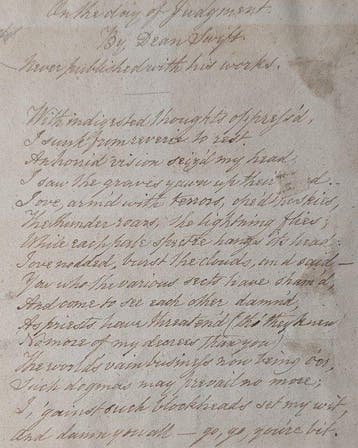 On the day of Judgment.
By Dean Swift
Never published with his works.
With indigested thoughts oppress'd,
I sunk from reverie to rest.
An horrid vision seiz'd my head,
I saw the graves yawn up their d.
Jove, arm'd with terrors, op'd the skies,
The thunder roars, the lightning flies;
While each pale hangs his head,
Jove nodded, burst the clouds, and said—
You who the various sects have sham'd,
And come to see each other damn'd,
As priests have threaten'd (tho' they knew
No more of my decrees than you)
The world's vain business now being o'er,
Such dogmas may prevail no more;
I, 'gainst such blockheads set my wit,
And damn you all — go, go, you're bit.